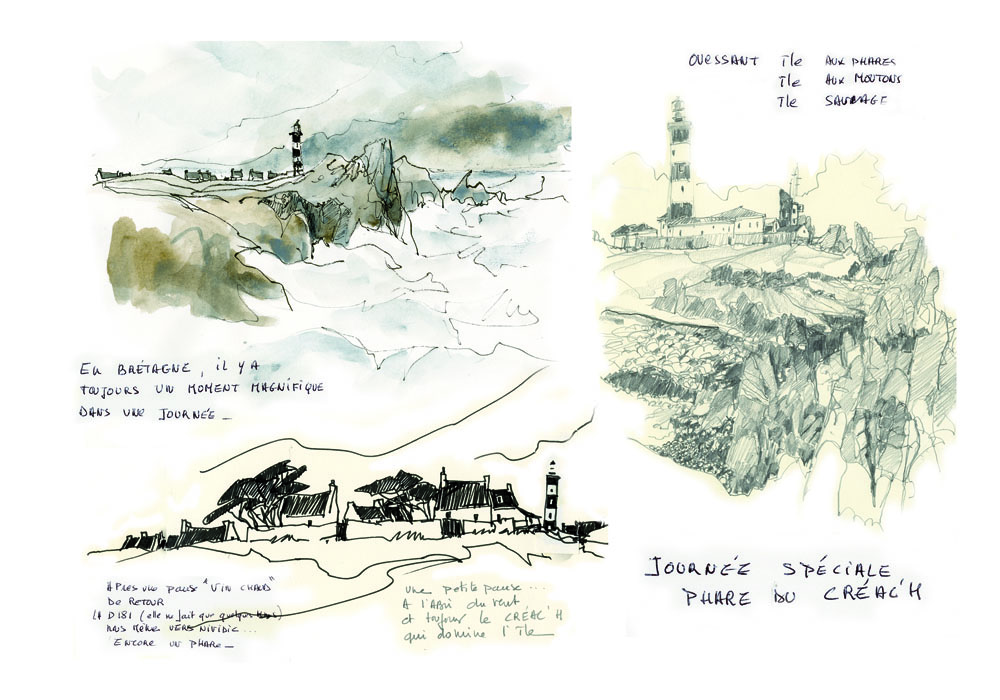 OUESSANT île AUX PHARES
île AUX MOUTONS
île SAUVAGE
EN BRETAGNE, il Y A
TOUJOURS UN MOMENT MAGNIFIQUE
DANS UNE JOURNÉE _
APRES UNE pause "VIN CHAUD"
DE RETOUR
LA D181 (elle ne fait que quelques)
nous Mène VERS NIVIDIC ...
ENCORE UN PHARE _
une petite pause ...
A l'Abri du vent
et toujours le CRÉAC'H
qui domine l'île _
JOURNÉE SPÉCIALE
PHARE DU CRÉAC'H